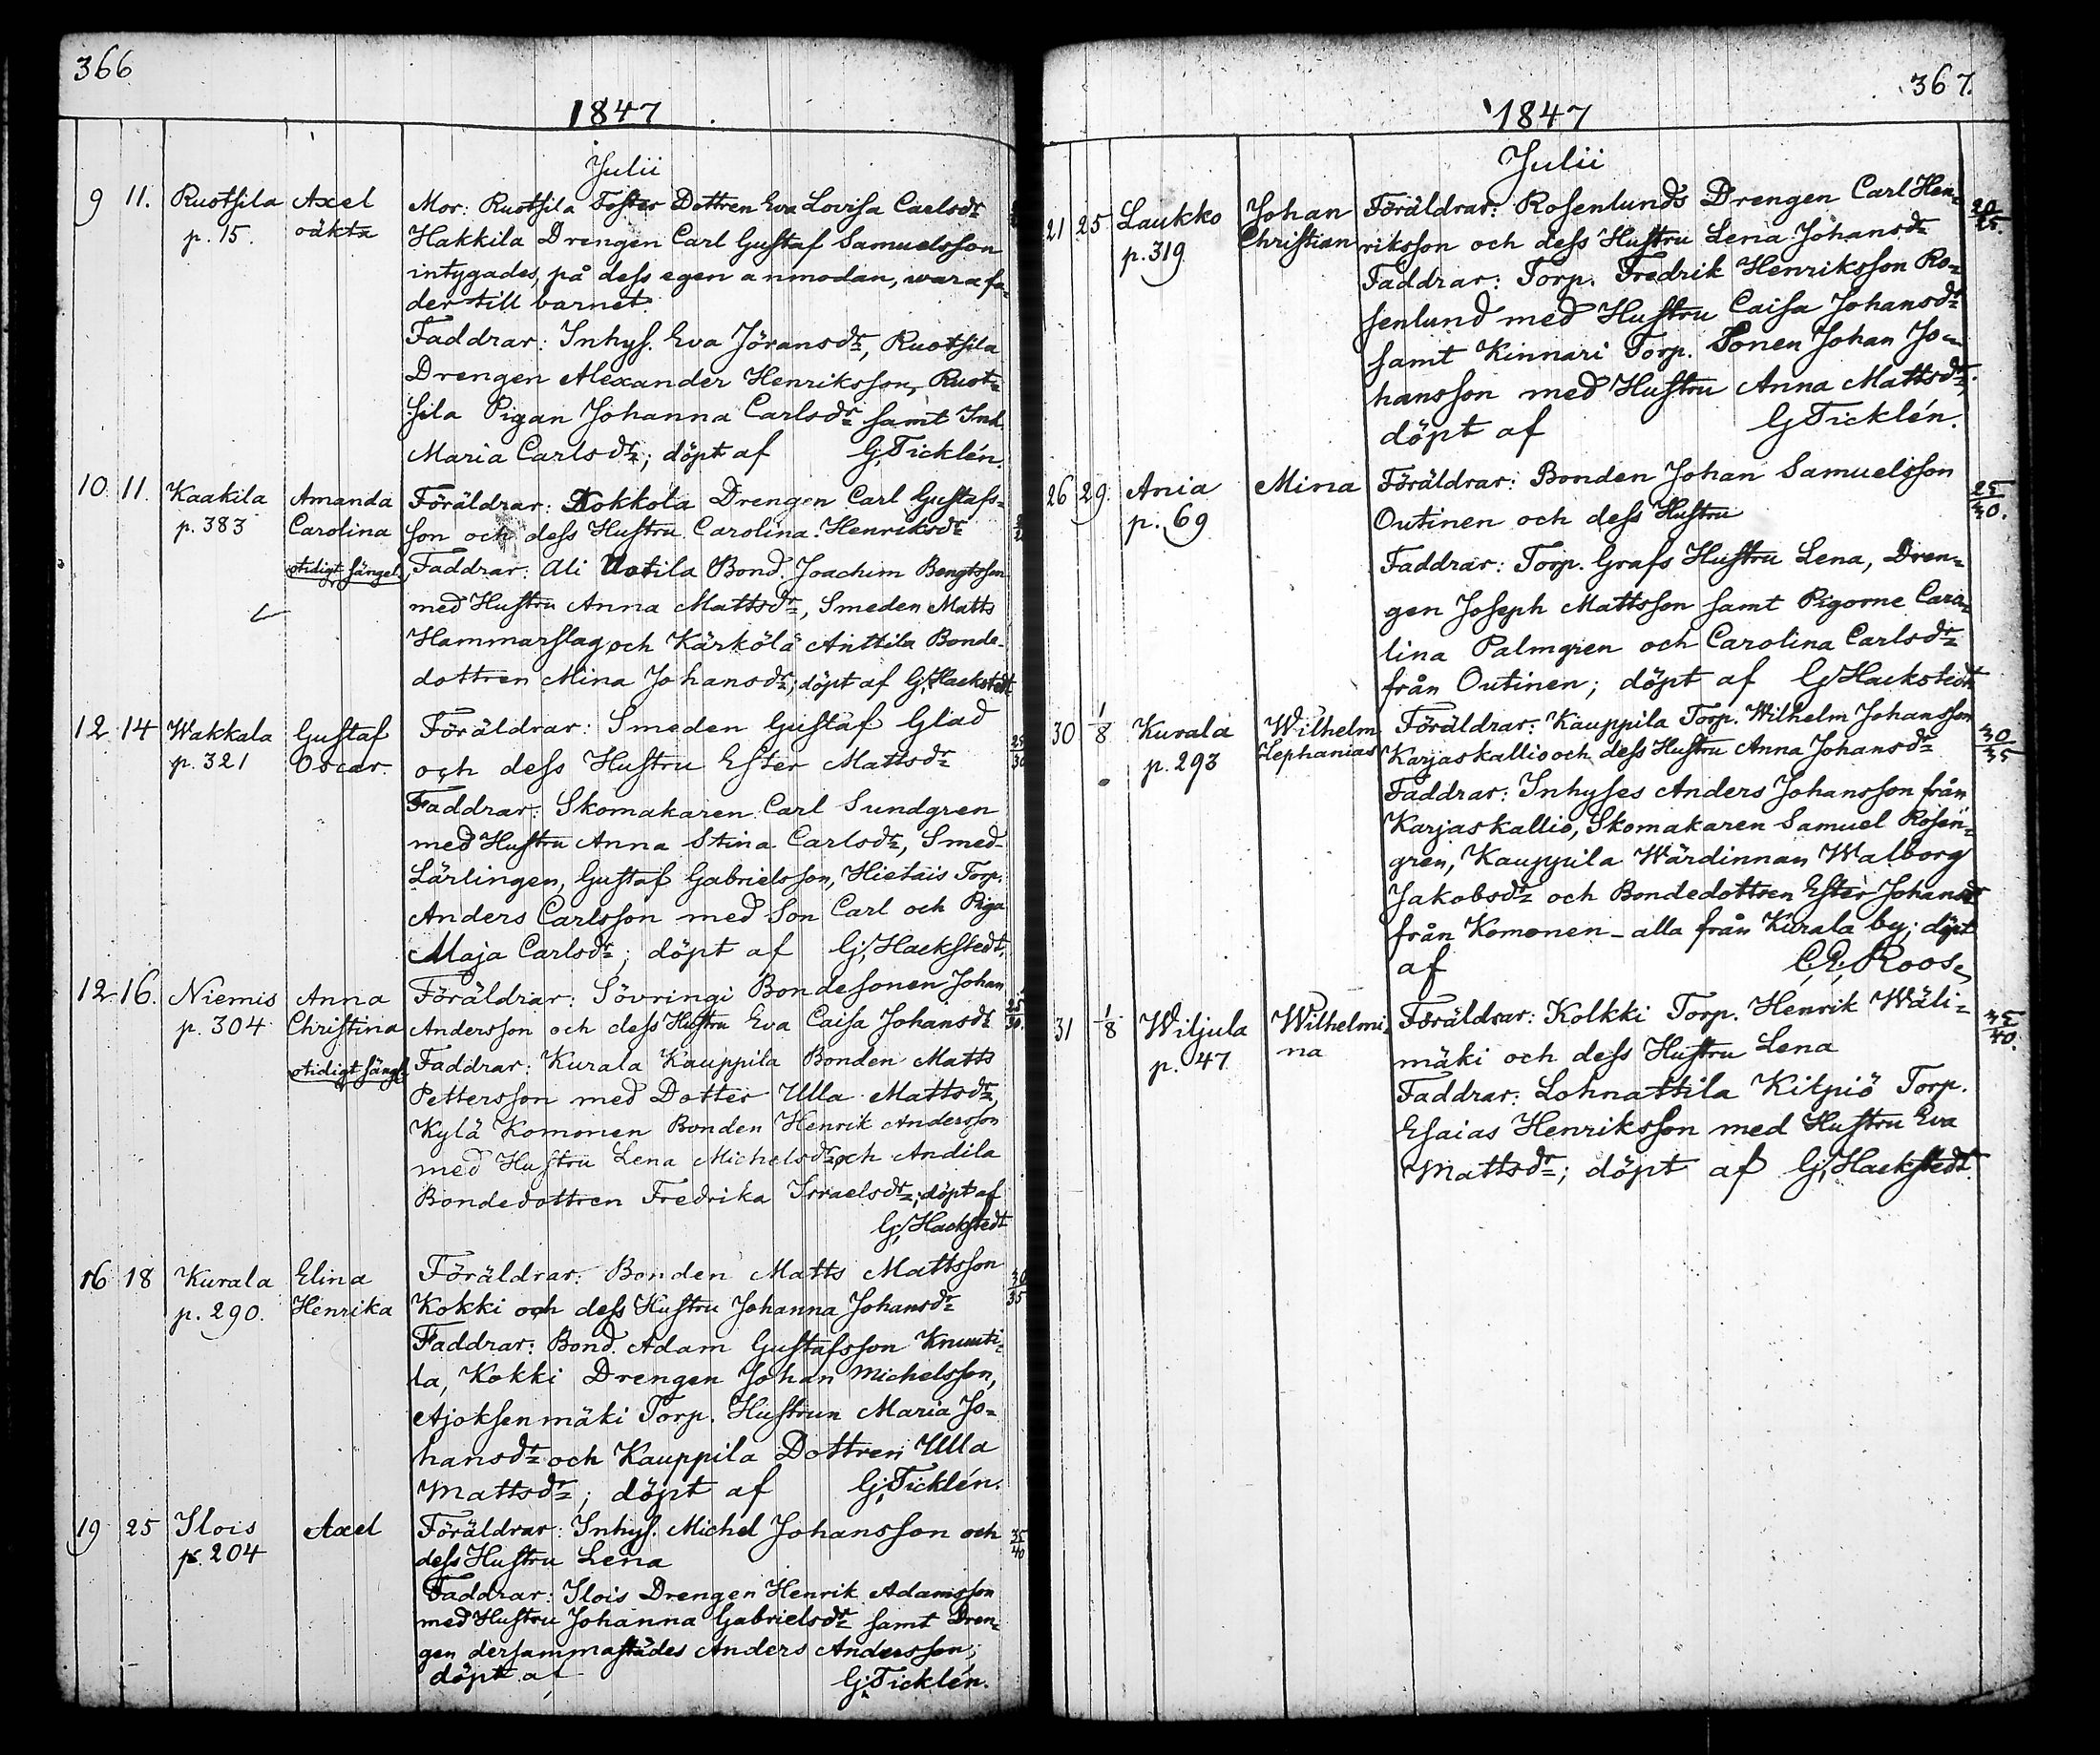 366
1847
Julii
9 11. Ruotsila Axel Mor: Ruotsila Foster Dottren Eva Lovisa Caelsdr
p. 15. oäkta Hakkila Drengen Carl Gustaf Samuelsson
intygades, på dess egen anmodan, wara fa-
der till barnet.
Faddrar: Inhys. Eva Jöransdr, Ruotsila
Drengen Alexander Henriksson, Ruot-
sila Pigan Johanna Carlsdr samt Inh.
Maria Carlsdr; döpt af G. Ticklén.
10 11. Kaakila Amanda Föräldrar: Drengen Carl Gustafs-
p. 383 Carolina son och dess Hustru Carolina Henriksdr
otidigt sängel. Faddrar: Ali Bond. Joachim Bengtsson
med Hustru Anna Mattsdr, Smeden Matts
Hammarslag och Kärkölä Anttila Bonde-
dottren Mina Johansdr; döpt af G. Hackstedt
12 14 Wakkala Gustaf Föräldrar: Smeden Gustaf Glad 25
p. 321 Oscar. och dess Hustru Ester Mattsdr 30
Faddrar: Skomakaren Carl Sundgren
med Hustru Anna Stina Carlsdr, Smed-
Lärlingen, Gustaf Gabrielsson, Hietais Torp.
Anders Carlsson med Son Carl och Piga
Maja Carlsdr; döpt af G. Hackstedt.
12 16. Niemis Anna Föräldrar: Sövringi Bondesonen Johan 25
p. 304 Christina Andersson och dess Hustru Eva Caisa Johansdr 30.
otidigt sängl. Faddrar: Kurala Kauppila Bonden Matts
Pettersson med Dotter Ulla Mattsdr,
Kylä Komonen Bonden Henrik Andersson
med Hustru Lena Michelsdr och Andila
Bondedottren Fredrika Israelsdr; döpt af
G. Hackstedt
16 18 Kurala Elina Föräldrar: Bonden Matts Mattsson 30
p. 290. Henrika Kokki och dess Hustru Johanna Johansdr 35
Faddrar: Bond. Adam Gustafsson Knuuti-
la, Kokki Drengen Johan Michelsson,
Ajoksenmäki Torp. Hustrun Maria Jo-
hansdr och Kauppila Dottren Ulla
Mattsdr; döpt af G. Ticklén.
19 25 Ilois Axel Föräldrar: Inhys. Michel Johansson och 35
p. 204 dess Hustru Lena 40
Faddrar: Ilois Drengen Henrik Adamsson
med Hustru Johanna Gabrielsdr samt Dren-
gen dersammastädes Anders Andersson;
döpt af G. Ticklén.
367.
1847
Julii
21 25 Laukko Johan Föräldrar: Rosenlunds Drengen Carl Hen- 20
p. 319 Christian riksson och dess Hustru Lena Johansdr 25.
Faddrar: Torp. Fredrik Henriksson Ro-
senlund med Hustru Caisa Johansdr
samt Kinnari Torp. Sonen Johan Jo-
hansson med Hustru Anna Mattsdr;
döpt af G Ticklén.
26 29. Ania Mina Föräldrar: Bonden Johan Samuelsson 25
p. 69 Outinen och dess Hustru 30.
Faddrar: Torp. Grafs Hustru Lena, Dren-
gen Joseph Mattsson samt Pigorne Caro-
lina Palmgren och Carolina Carlsdr
från Outinen; döpt af G Hackstedt
30 1/8 Kurala Wilhelm Föräldrar: Kauppila Torp. Wilhelm Johansson 30
p. 293 Zephanias Karjaskallio och dess Hustru Anna Johansdr 35
Faddrar: Inhyses Anders Johansson från
Karjaskallio, Skomakaren Samuel Rosen-
gren, Kauppila Wärdinnan Walborg
Jakobsdr och Bondedottren Ester Johansdr
från Komonen - alla från Kurala by; döpt
af C. E. Roos.
31 1/8 Wiljula Wilhelmi- Föräldrar: Kolkki Torp. Henrik Wäli- 35
p. 47 na mäki och dess Hustru Lena 40.
Faddrar: Lohnattila Kilpiö Torp.
Esaias Henriksson med Hustru Eva
Mattsdr; döpt af G. Hackstedt.